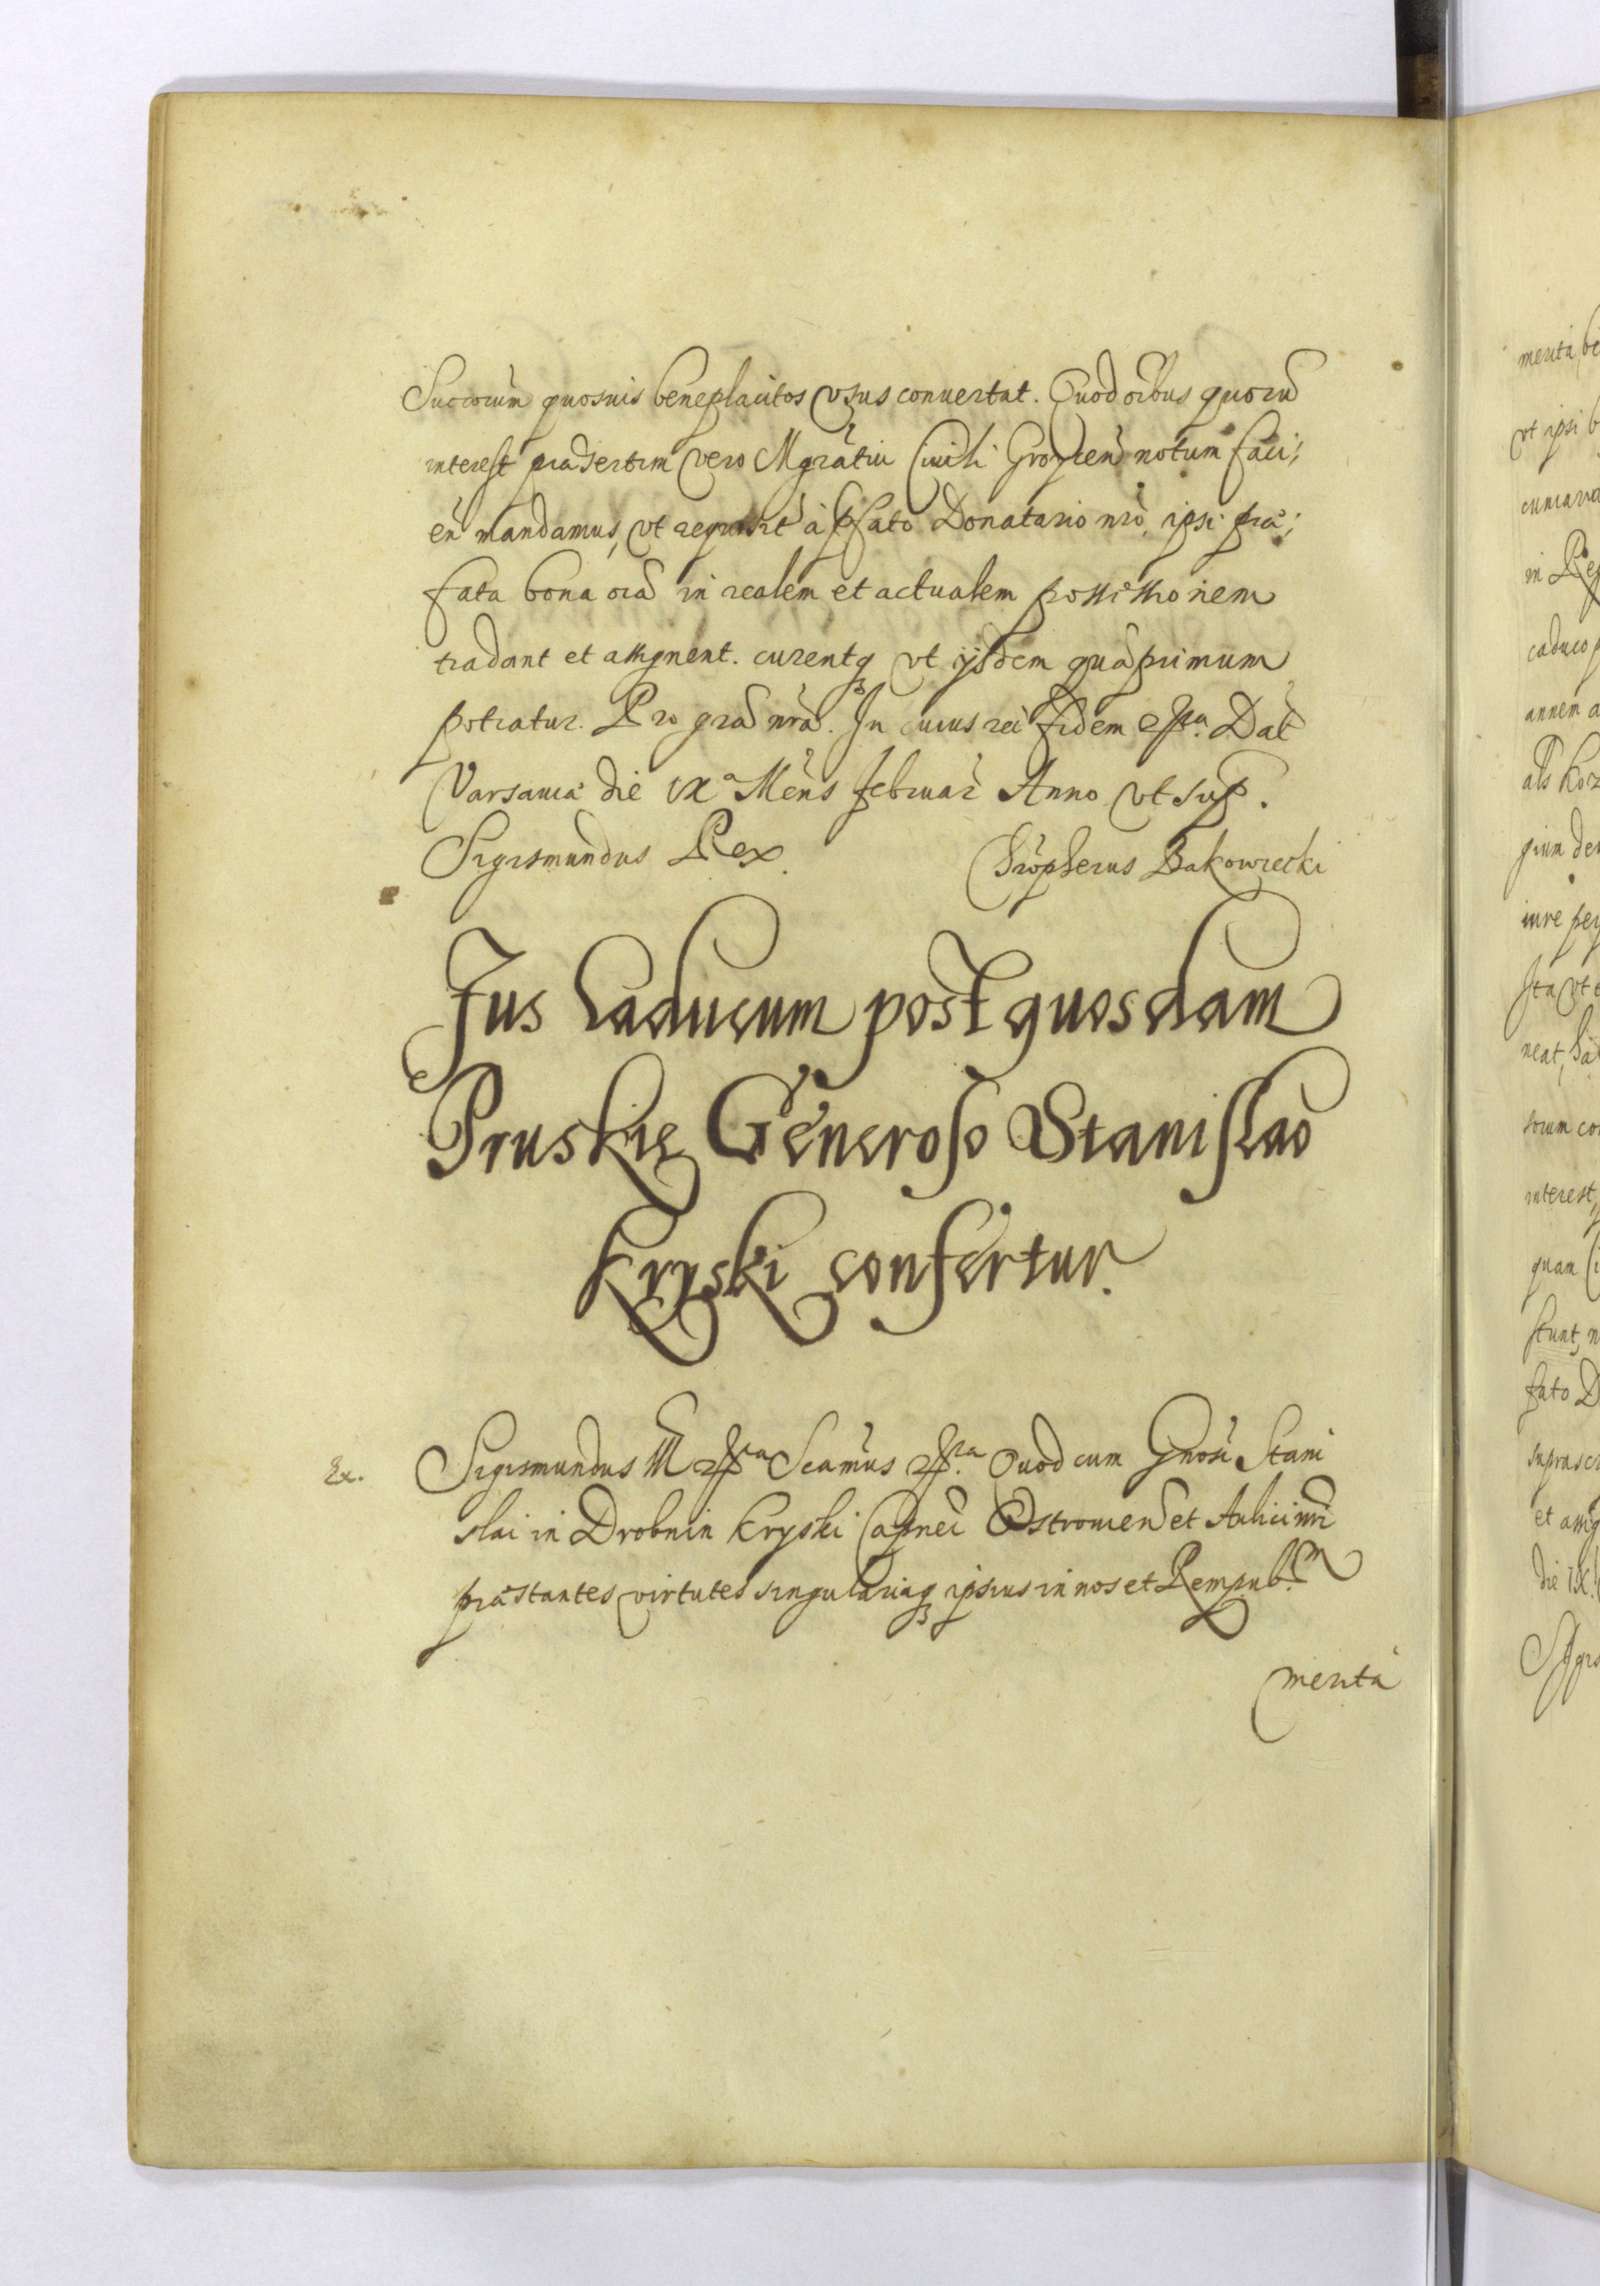 Succorum quosuis beneplacitos vsus conuertat. Quod oibus quorū
interest præsertim vero Mgrãtui Ciuili Groycen̄ notum faci;
en̄ mandamus, vt requisit̄ à p̄fato Donatario nr̄o, ipsi præ;
fata bona oīa in realem et actualem possessionem
tradant et assignent. curentq vt ijsdem quāprimum
potiatur. Pro grā nrā. In cuius rei fidem etc. Dat̄
Varsauiæ die IXa Mens̄ Februar̄ Anno vt sup.
Sigismundus Rex.
Chr̄opherus Bakowiecki
Jus Caducum post quosdam
Pruskie Generoso Stanislao
Kryski confertur.
Ex.
Sigismundus III etc Scamus etc. Quod cum Gnosi Stani
slai in Drobnin Kryski Capnei Ostromen et Aulici nr̄i
præstantes virtutes singulariaq ipsius in nos et Rempub.m
merita
merita
vt ipsi
in
caduco
annem
als
gium
iure
Ita vt
neat,
interest,
quam
stunt,
fato D
et
die IX